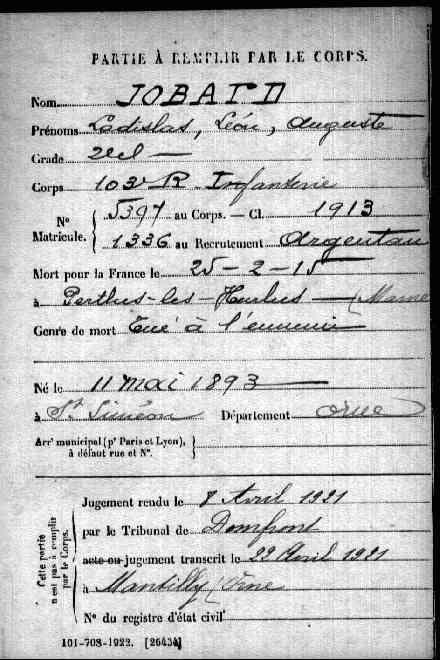 PARTIE À REMPLIR PAR LE CORPS.
Nom JOBARD
Prénoms Ladislas, Léon, Auguste
Grade 2e cl
Corps 103e R Infanterie
N° Matricule. 5397 au Corps. — Cl. 1913
1336 au Recrutement Argentan
Mort pour la France le 25-2-15
à Perthes-les-Hurlus (Marne
Genre de mort Tué à l'ennemi
Né le 11 mai 1893
à St Siméon Département Orne
Arrt municipal (pr Paris et Lyon),
à défaut rue et N°.
Cette partie n'est pas à remplir par le Corps.
Jugement rendu le 8 Avril 1921
par le Tribunal de Domfront
acte ou jugement transcrit le 22 Avril 1921
à Mantilly (Orne
N° du registre d'état civil
101-708-1922. [26434]